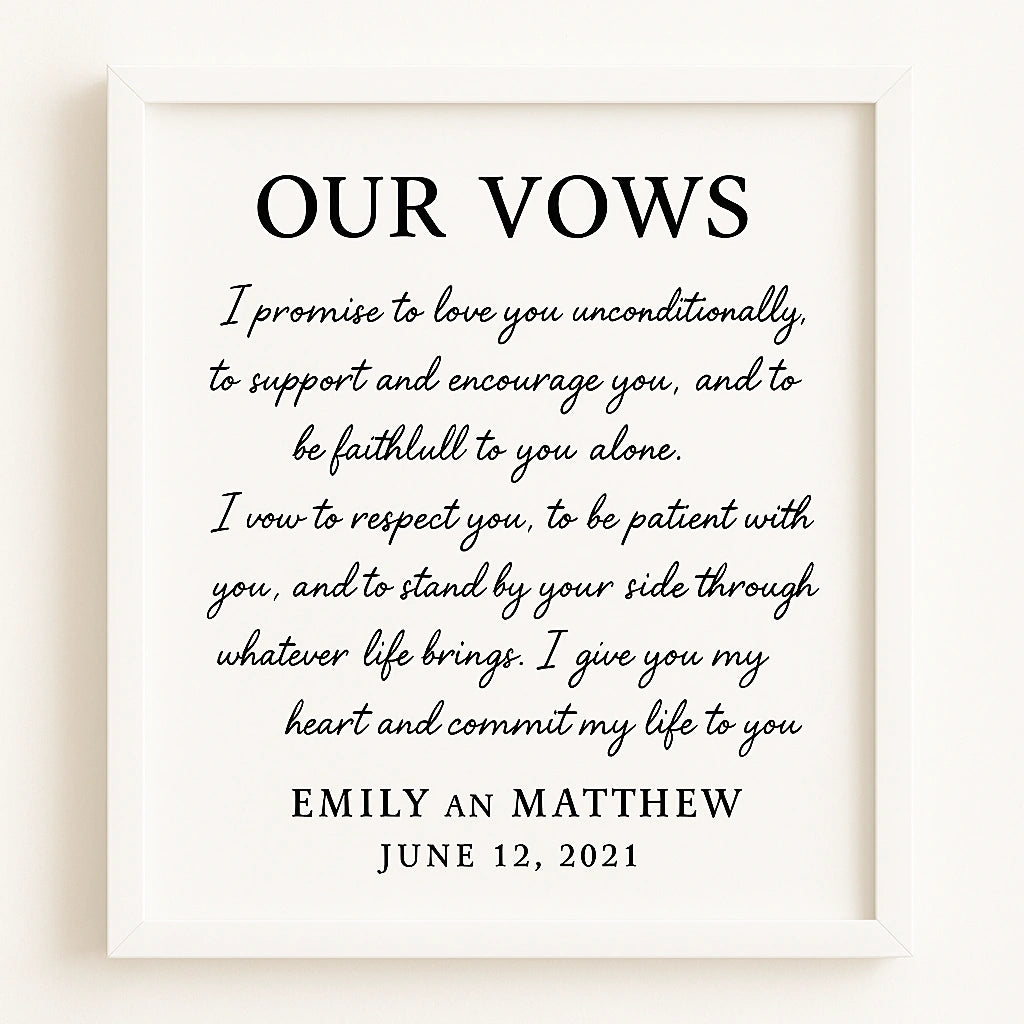 OUR VOWS
I promise to love you unconditionally,
to support and encourage you, and to
be faithlull to you alone.
I vow to respect you, to be patient with
you, and to stand by your side through
whatever life brings. I give you my
heart and commit my life to you
EMILY AN MATTHEW
JUNE 12, 2021